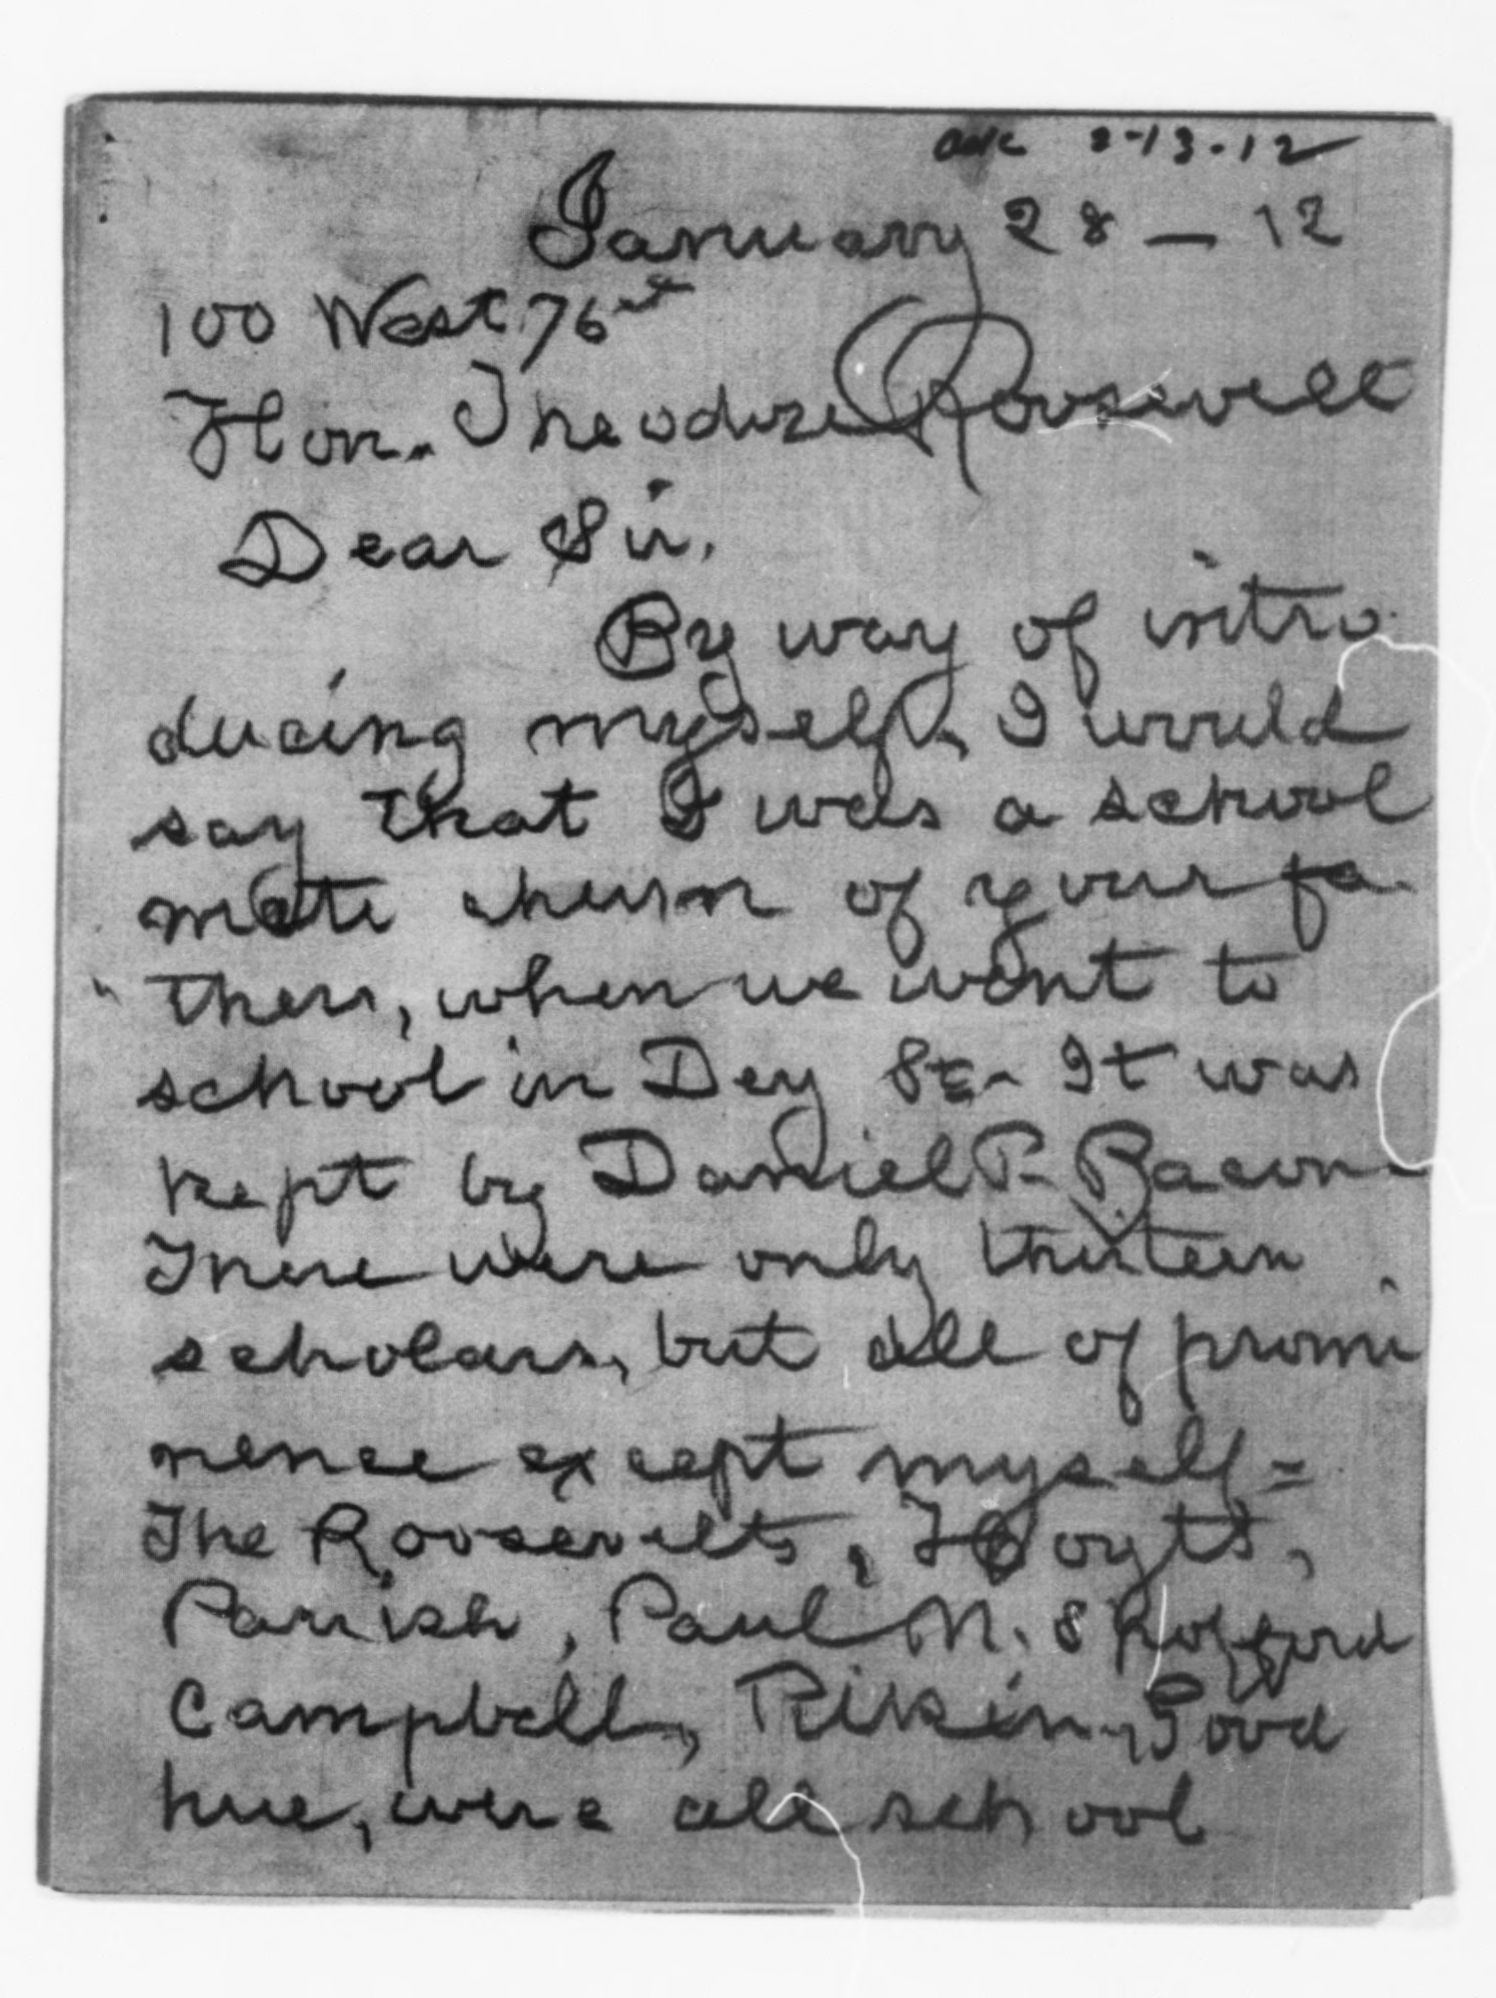 ack 2-13-12
January 28 - 12
100 West 76 st
Hon. Theodore Roosevelt
Dear Sir,
By way of intro
ducing myself, I would
say that I was a school
mate chum of your fa
ther, when we went to
school in Dey St - It was
kept by Daniel P. Bacon
There were only thirteen
scholars, but all of promi
nence except myself -
The Roosevelts, Hoyts,
Parish, Paul N. Shofford
Campbell, Good
hue, were all school